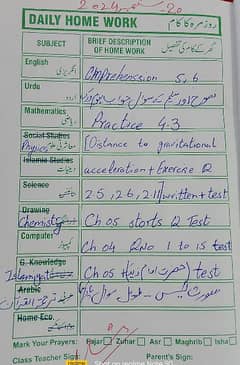 20 ستمبر 2024
DAILY HOME WORK روزمرہ کا کام
SUBJECT BRIEF DESCRIPTION OF HOME WORK گھر کے کام کی تفصیل
English انگریزی Comprehenssion 5, 6
Urdu اردو سوال جواب
Mathematics ریاضی Practice 4.3
Social Studies Physics معاشرتی علوم [Distance to gravitational
Islamic Studies اسلامیات acceleration + Exercise Q
Science سائنس 25, 26, 27] written + test
Drawing Chemistry Ch 05 starts Q Test
Computer کمپیوٹر Ch 04 Q No 1 to 15 test
G. Knowledge Islamiat Ch 05 test
Arabic عربی ترجمۃ القرآن سورت سوال
Home Eco.
Mark Your Prayers: Fajar Zuhar Asr Maghrib Isha
Class Teacher Sign: Parent's Sign: